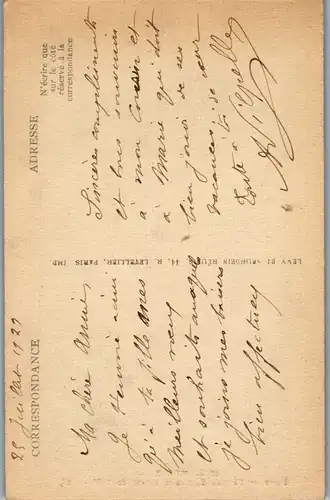 25 Juillet 1927
CORRESPONDANCE
Ma chère
Je t'envoie ainsi
qu'à ta fille mes
meilleurs vœux
et souhaits auxquels
je joins mes baisers
bien affectueux
LEVY ET NEURDEIN RÉUNIS, 44, R. LETELLIER, PARIS IMP.
ADRESSE
N'écrire que
sur le côté
réservé à la
correspondance
Sincères compliments
et bons souvenirs
à mon cousin et
à Marie qui doit
bien jouir de ses
vacances. de cœur
Toute à toi